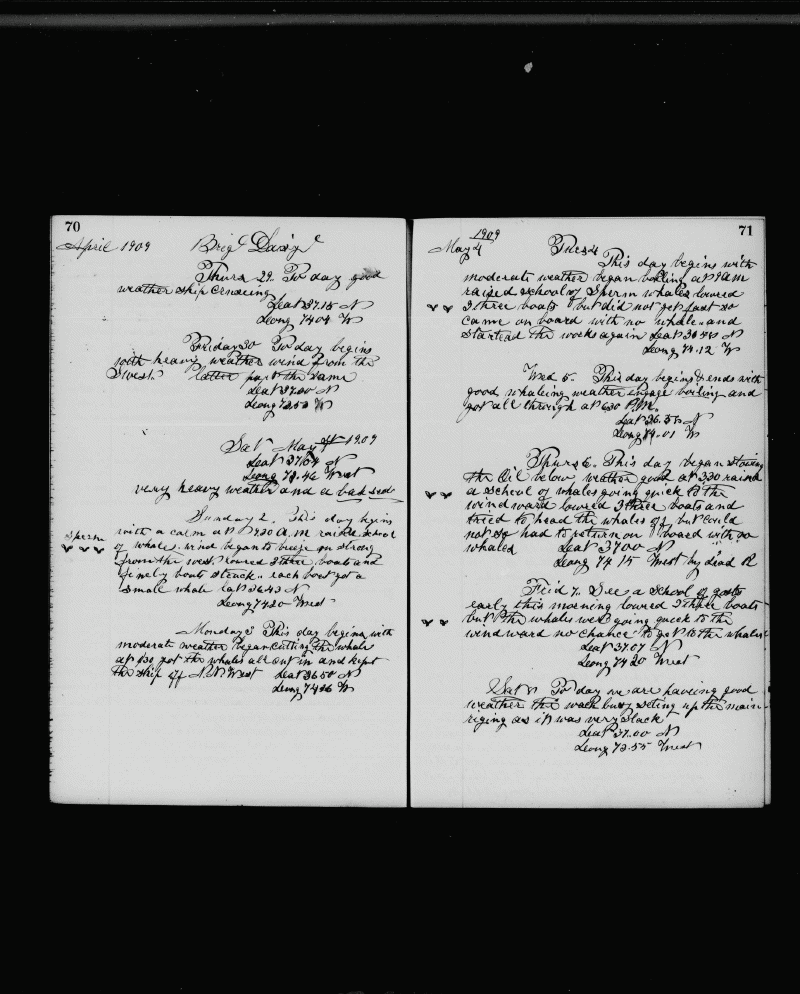 70
April 1909 Brig Daisy
Thurs 29. To day good
weather ship Cruseing
Leat 37.15 N
Leong 74.04 W
Friday 30 To day begins
with heavy weather wind from the
Swest. latter part the same
Leat 37.00 N
Leong 73.53 W
Sat May 1st 1909
Leat 37.04 N
Leong 73.46 West
very heavy weather and a bad sea
Sunday 2. This day begins
with a calm at 7.30 A.M raised school
Sperm
of whales. wind began to breeze on strong
from the west. loured 3 three boats and
finely boats struck.. each boat got a
small whale Lat 36.43 N
Leong 74.20 West
Monday 3 This day begins with
moderate weather began cutting the whale
at 5.30 got the whales all cut in and kept
the ship off N.N West Leat 36.50 N
Leong 74.16 W
71
1909
May 4 Tues 4
This day begins with
moderate weather began boiling at 9 AM
raised school of Sperm whales lowred
3 three boats but did not get fast so
came on board with no whale and
started the works again Leat 36.48 N
Leong 74.12 W
Wed 5. This day begins & ends with
good whaleing weather engage boiling and
got all through at 6.30 P.M.
Leat 36.55 N
Leong 74.01 W
Thurs 6. This day began stowing
the Oil below weather good at 3.30 raised
a school of whales going quick to the
windward lowred 3 three boats and
tried to head the whales off but could
not so had to return on board with no
whales Leat 37.00 N
Leong 74 15 West by Dead R
Frid 7. See a School of
early this morning lowred 3 three boats
but the whales was going queck to the
windward no chance to get to the whales
Leat 37.07 N
Leong 74 20 West
Sat 8 To day we are haveing good
weather the wach busy seting up the main
riging as it was very slack
Leat 37.00 N
Leong 73.55 West